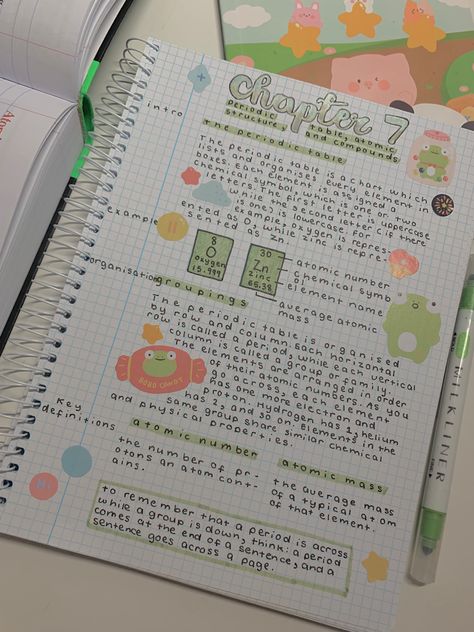 chapter 7
periodic table, atomic
structure, and compounds
intro
the periodic table
The periodic table is a chart which
lists and organises every element in
boxes. Each element is assigned a
chemical symbol, which is one or two
letters. The first letter is uppercase
while the second letter (if there
is one) is lowercase. For
example, oxygen is repres-
ented as O, while zinc is repre-
sented as Zn.
example
8
O
oxygen
15.999
30
Zn
zinc
65.38
atomic number
chemical symbol
element name
average atomic
mass
organisation
groupings
The periodic table is organised
by row and column. Each horizontal
row is called a period, while each vertical
column is called a group or family.
The elements are arranged in order
of their atomic numbers. As you
go across, each element
has one more electron and
proton. Hydrogen has 1, helium
has 2, and so on. Elements in the
same group share similar chemical
and physical properties.
BOBO CANDY
key
definitions
atomic number
the number of pr-
otons an atom cont-
ains.
atomic mass
the average mass
of a typical atom
of that element.
to remember that a period is across
while a group is down, think: a period
comes at the end of a sentence, and a
sentence goes across a page.
Hi
MILDLINER